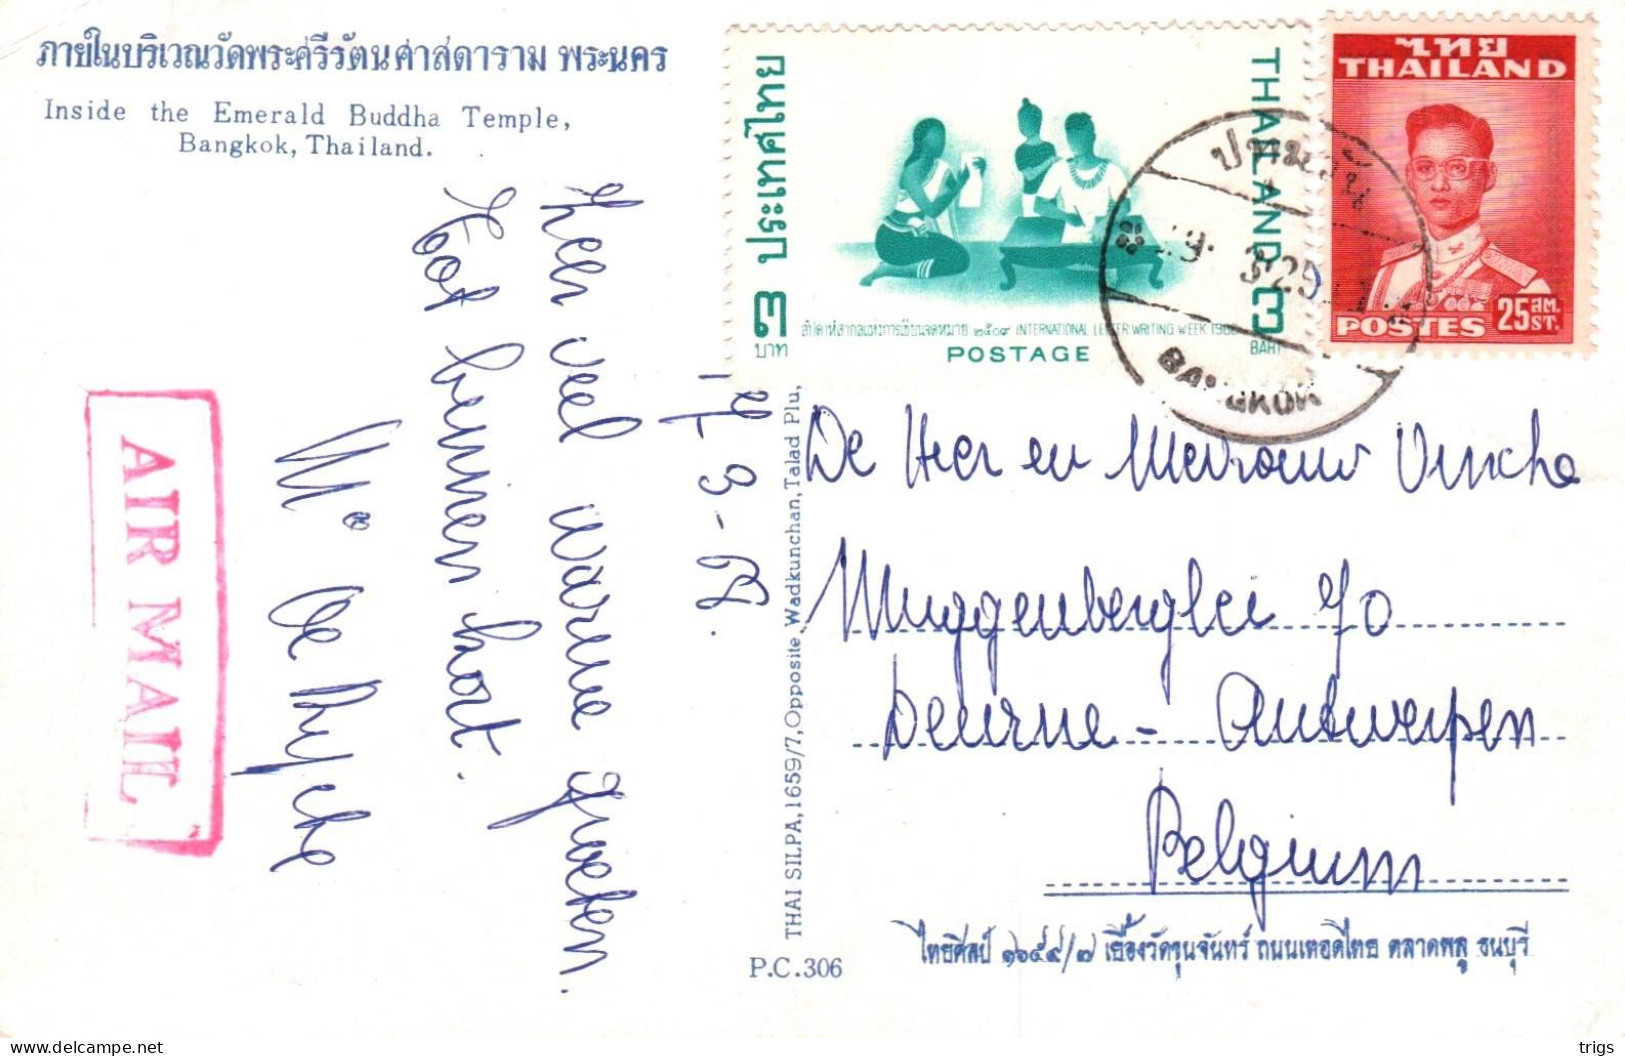 ภายในบริเวณวัดพระศรีรัตนศาสดาราม พระนคร
Inside the Emerald Buddha Temple,
Bangkok, Thailand.
ประเทศไทย
THAILAND
๓
บาท
3
BAHT
สัปดาห์สากลแห่งการเขียนจดหมาย ๒๕๐๙ INTERNATIONAL LETTER WRITING WEEK 1966
POSTAGE
ไทย
THAILAND
25 สต.
ST.
POSTES
BANGKOK
AIR MAIL
17-3-68.
Heel veel warme groeten.
Tot binnen kort.
De Heer en Mevrouw Vinche
Muggenberglei 70
Deurne - Antwerpen
Belgium
THAI SILPA, 1659/7, Opposite Wadkunchan, Talad Plu,
P.C.306
ไทยศิลป์ ๑๖๕๙/๗ เยื้องวัดขุนจันทร์ ถนนเทอดไทย ตลาดพลู ธนบุรี
https://www.delcampe.net
trigs